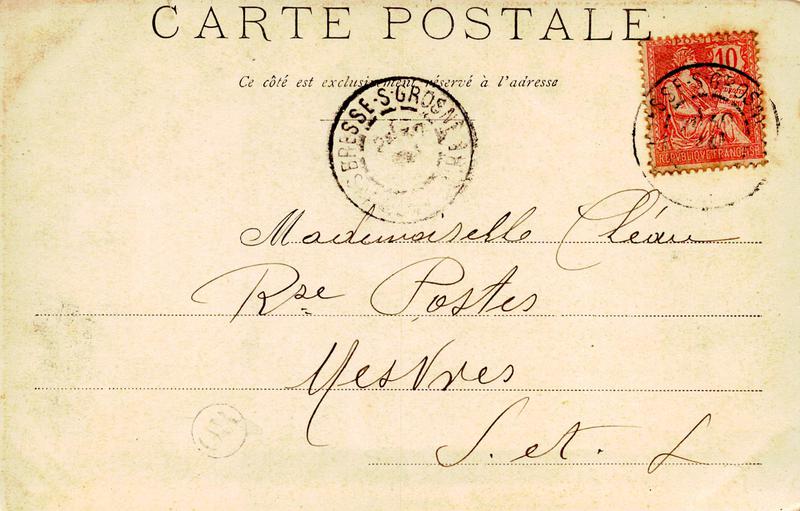 CARTE POSTALE
Ce côté est exclusivement réservé à l'adresse
BRESSE-S-GROSNE
POSTES
10
REPVBLIQVE FRANÇAISE
Mademoiselle Cléau
Rse Postes
Mesvres
S. et. L